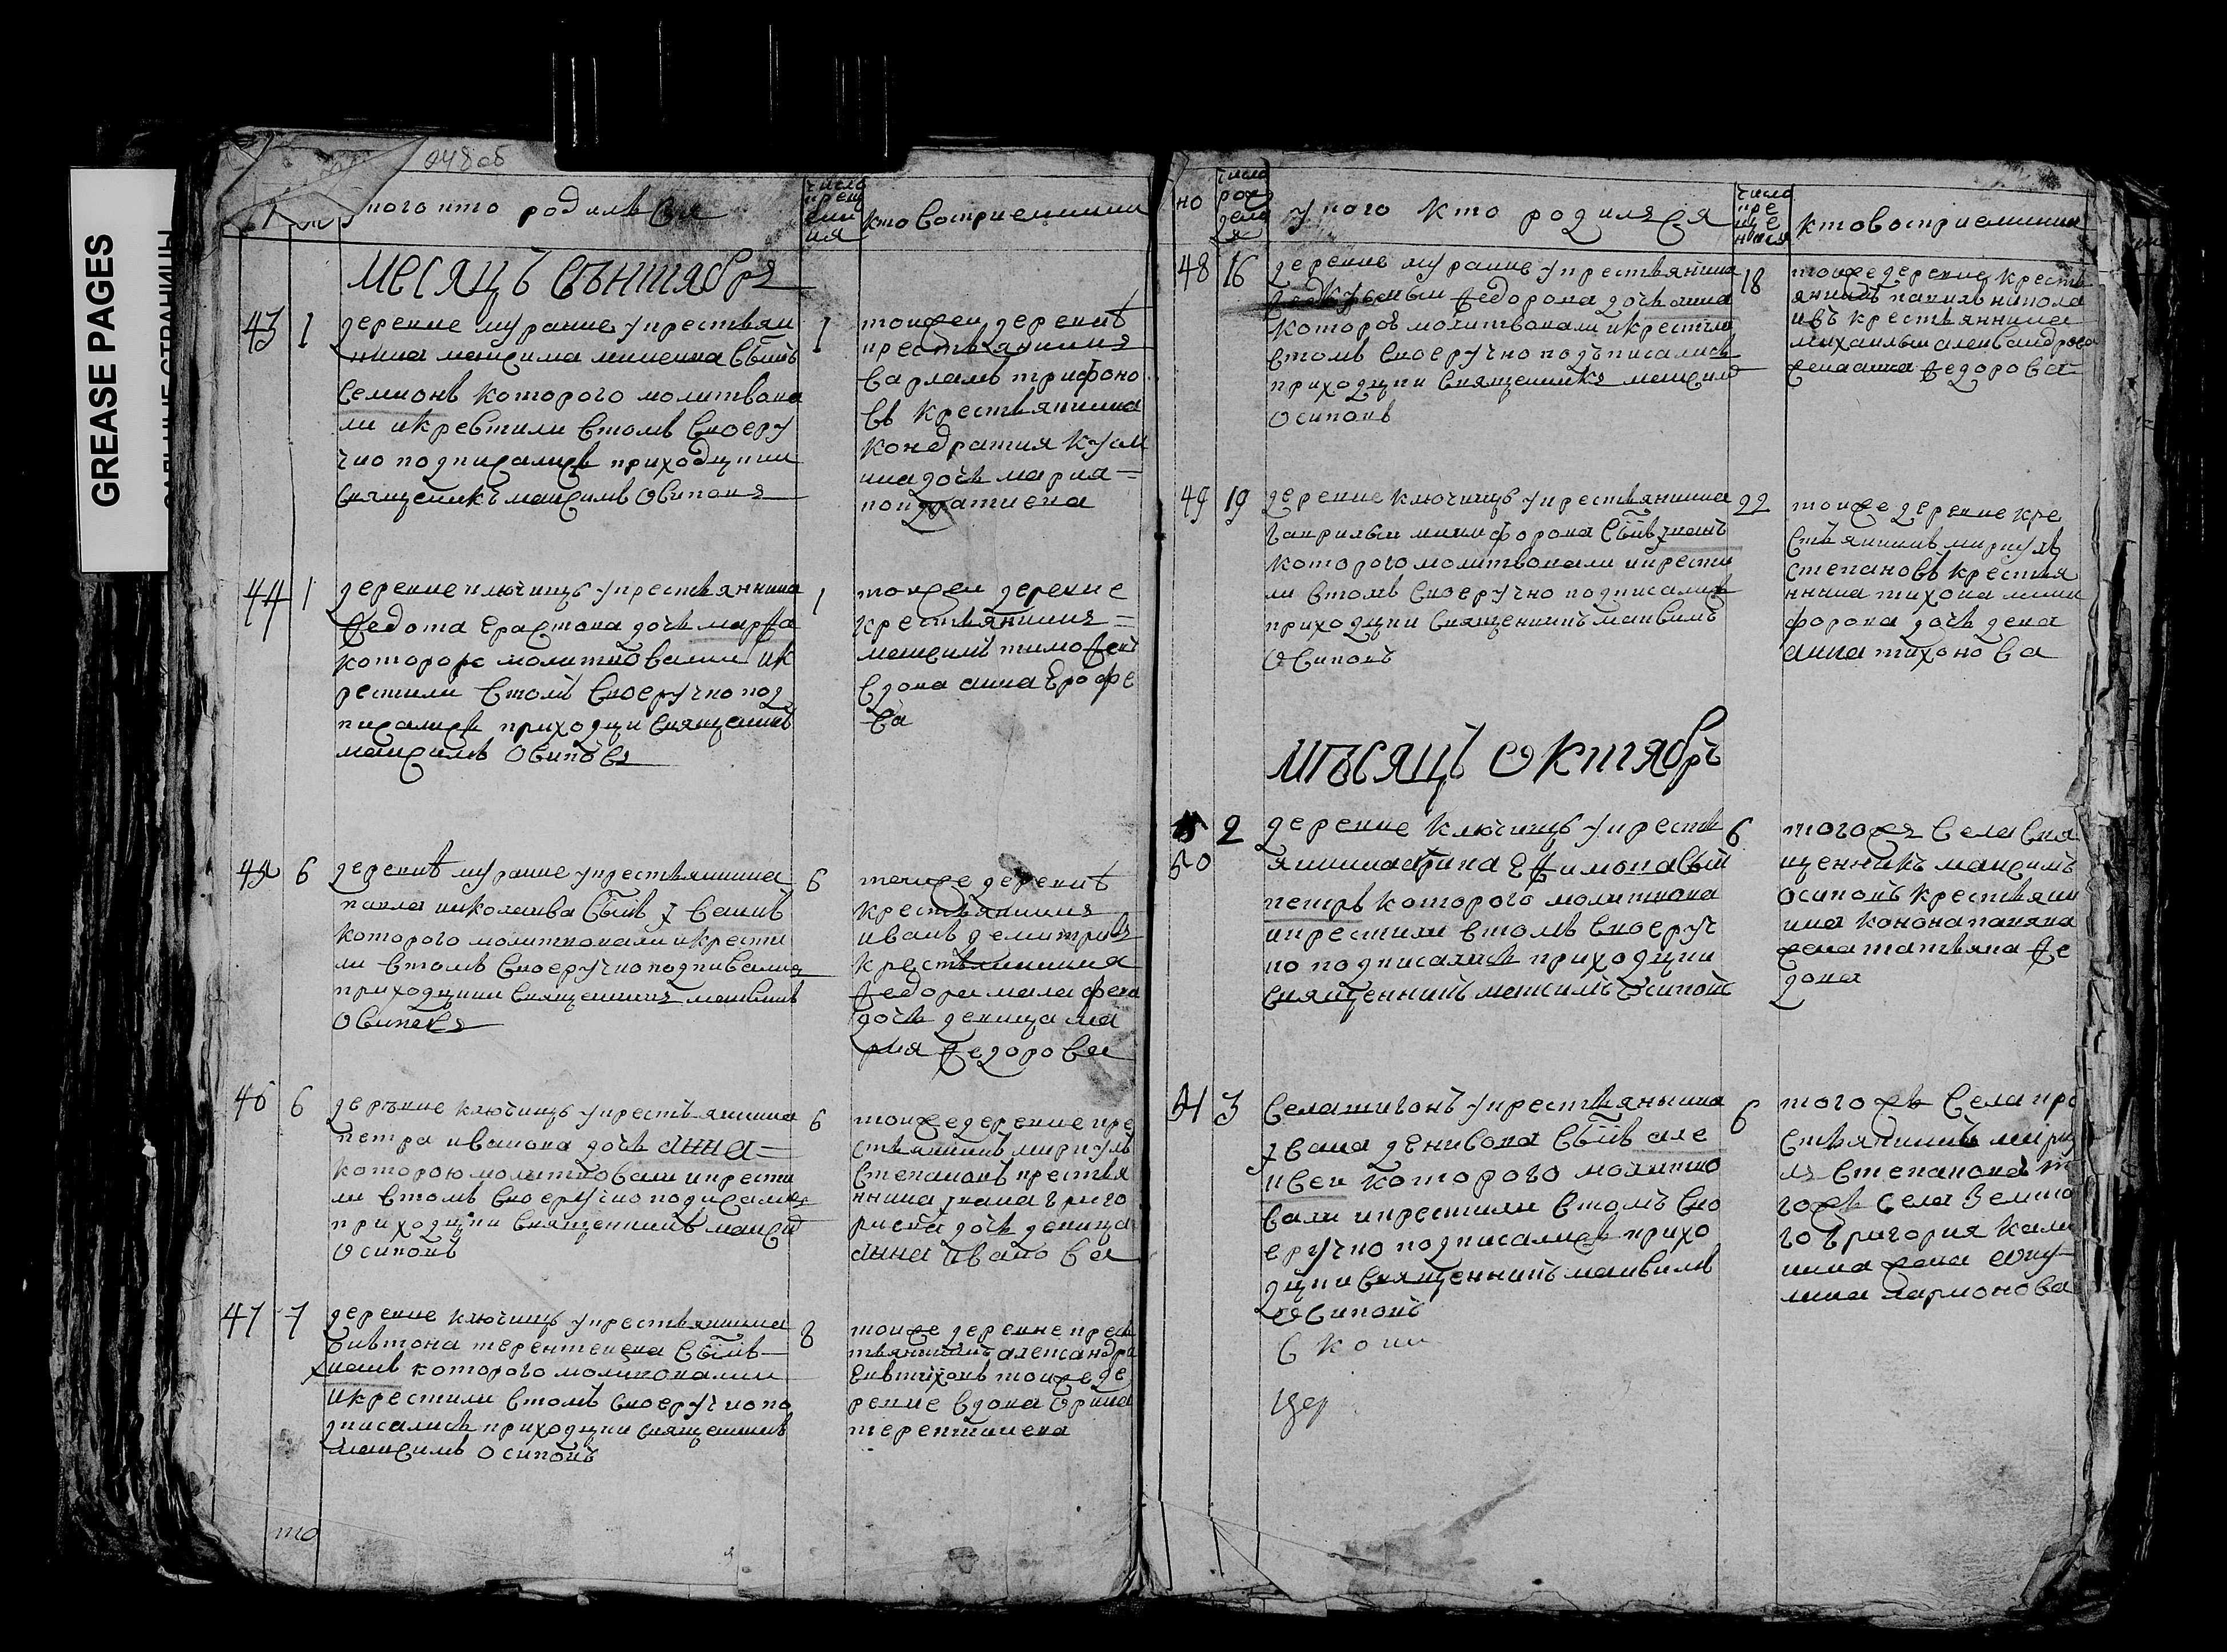 GREASE PAGES
048об
кого кто родилъся
число
крещ
ении
ия
кто восприемники
месяцъ сентябрь
43 1
деревне мурашке у крестьяни
нина максима минеина сынъ
семионъ которого молитвова
ли икрестили втомъ своеру
чно подписалисъ приходцкии
священикъ максимъ осиповъ
1
тоижеи деревнѣ
крестьянинъ
варламъ трифоно
въ крестьянина
кондратия кузм
ина дочь мария
кондратиева
44 1
деревне ключищъ у крестьянина
федота ерастова дочь марфа
которою молитвовали ик
рестили втомъ своеручно под
писалисъ приходцки священикъ
максимъ осиповъ
1
тоижеи деревне
крестьянинъ
максимъ тимофеевъ
вдова анна ерофе
ва
45 6
деревнѣ мурашке у крестьянина
павла николаива сынъ иванъ
которого молитвовали икрести
ли втомъ своеручно подписалися
приходцкии священикъ максимъ
осиповъ
6
тоиже деревнѣ
крестьянинъ
иванъ демитриевъ
крестьянина
федора малафеева
дочь девица ма
рия федорова
46 6
деревне ключищъ у крестьянина
петра иванова дочь анна
которою молитвовали икрести
ли втомъ своеручно подписалися
приходцки священникъ максимъ
осиповъ
6
тоиже деревне кре
стьянинъ миркулъ
степановъ крестья
нина ивана григо
риева дочь девица
анна иванова
47 7
деревне ключищъ у крестьянина
терентиева сынъ
иванъ которого молитвовали
икрестили втомъ своеручно по
дписалисъ приходцки священикъ
максимъ осиповъ
8
тоиже деревне крес
тьянинъ александра
евтиховъ тоиже де
ревне вдова орина
терентиева
то
но
число
рож
дени
я
у кого кто родилъся
число
кре
ще
ния
кто восприемники
48 16
деревне мурашке у крестьянина
федорова дочь анна
которою молитвовали икрестили
втомъ своеручно подъписалисъ
приходцки священикъ максимъ
осиповъ
18
тоиже деревне кресть
янинъ павилъ никола
ивъ крестьянина
михаилы александрова
жена анна федорова
49 19
деревне ключищъ у крестьянина
гаврилы никифорова сынъ иванъ
которого молитвовали икрести
ли втомъ своеручно подписалися
приходцки священникъ максимъ
осиповъ
22
тоиже деревне кре
стьянинъ миркулъ
степановъ крестья
нина тихона ники
форова дочь дева
анна тихонова
мѣсяцъ октябръ
50 2
деревне ключищъ у кресть
янина ефимова сынъ
петръ которого молитвова
икрестили втомъ своеруч
но подписалисъ приходцки
священникъ максимъ осиповъ
6
тогожъ села свя
щенникъ максимъ
осиповъ крестьяни
на конона
жена татьяна фе
дова
51 3
села шигонъ у крестьянина
ивана денисова сынъ але
ксеи которого молитво
вали икрестили втомъ сво
еручно подписалисъ прихо
дцки священникъ максимъ
осиповъ
6
тогожъ села кре
стьянинъ мирку
лъ степановъ то
гожъ села земско
го григория кали
нина жена аку
лина ларионова
Скопи
цер